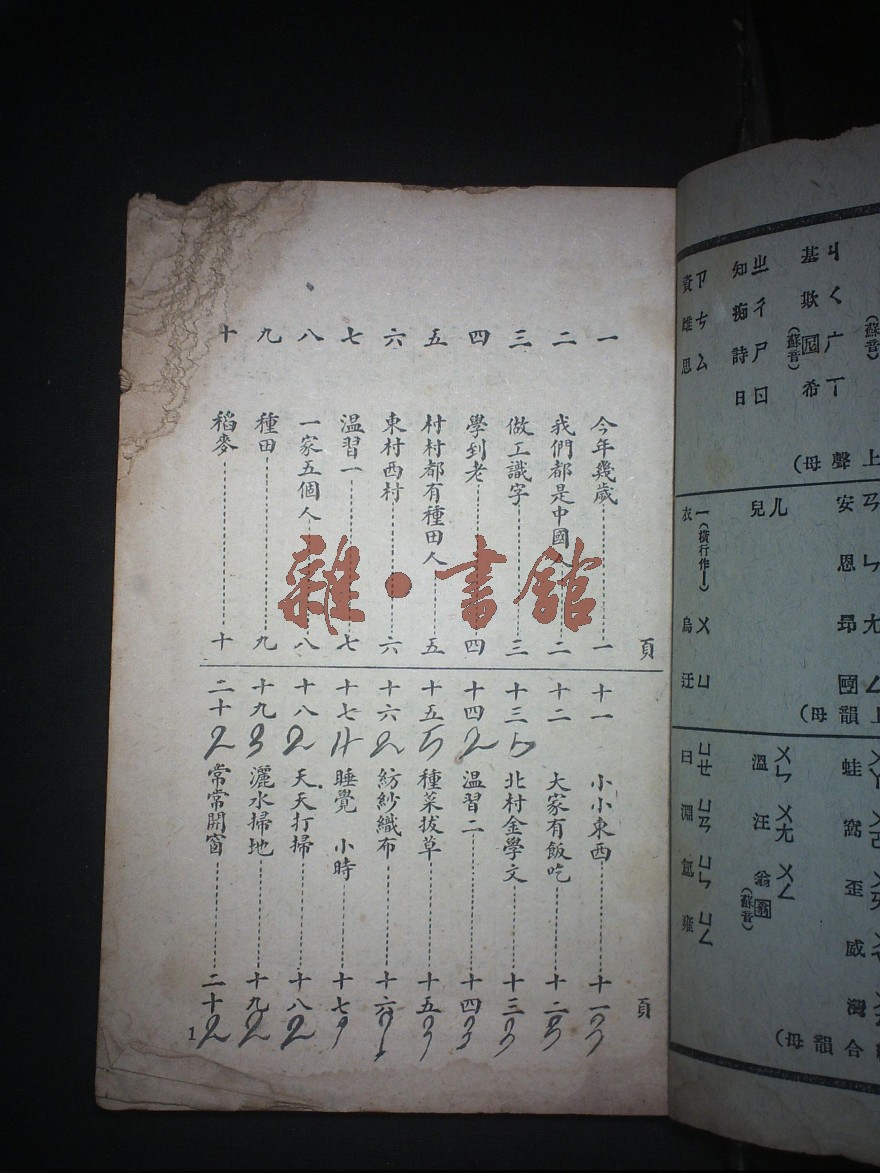 頁
一 今年幾歲 一
二 我們都是中國人 二
三 做工識字 三
四 學到老 四
五 村村都有種田人 五
六 東村西村 六
七 温習一 七
八 一家五個人 八
九 種田 九
十 稻麥 十
頁
十一 小小東西 十一
十二 大家有飯吃 十二
十三 北村金學文 十三
十四 温習二 十四
十五 種菜拔草 十五
十六 紡紗織布 十六
十七 睡覺 小時 十七
十八 天天打掃 十八
十九 灑水掃地 十九
二十 常常開窗 二十
1
雜·書館
(蘇音)
ㄐ ㄑ 广 ㄒ
基 欺 希
(蘇音)
ㄓ ㄔ ㄕ ㄖ
知 痴 詩 日
ㄗ ㄘ ㄙ
資 雌 思
上聲母)
ㄢ ㄣ ㄤ ㄥ
安 恩 昂
ㄦ
兒
一(橫行作丨) ㄨ ㄩ
衣 烏 迂
上韻母)
ㄨㄚ ㄨㄛ ㄨㄞ
蛙 窩 歪 威 灣
ㄨㄣ ㄨㄤ ㄨㄥ
溫 汪 翁
(蘇音)
ㄩㄝ ㄩㄢ ㄩㄣ ㄩㄥ
曰 淵 氳 雍
合韻母)